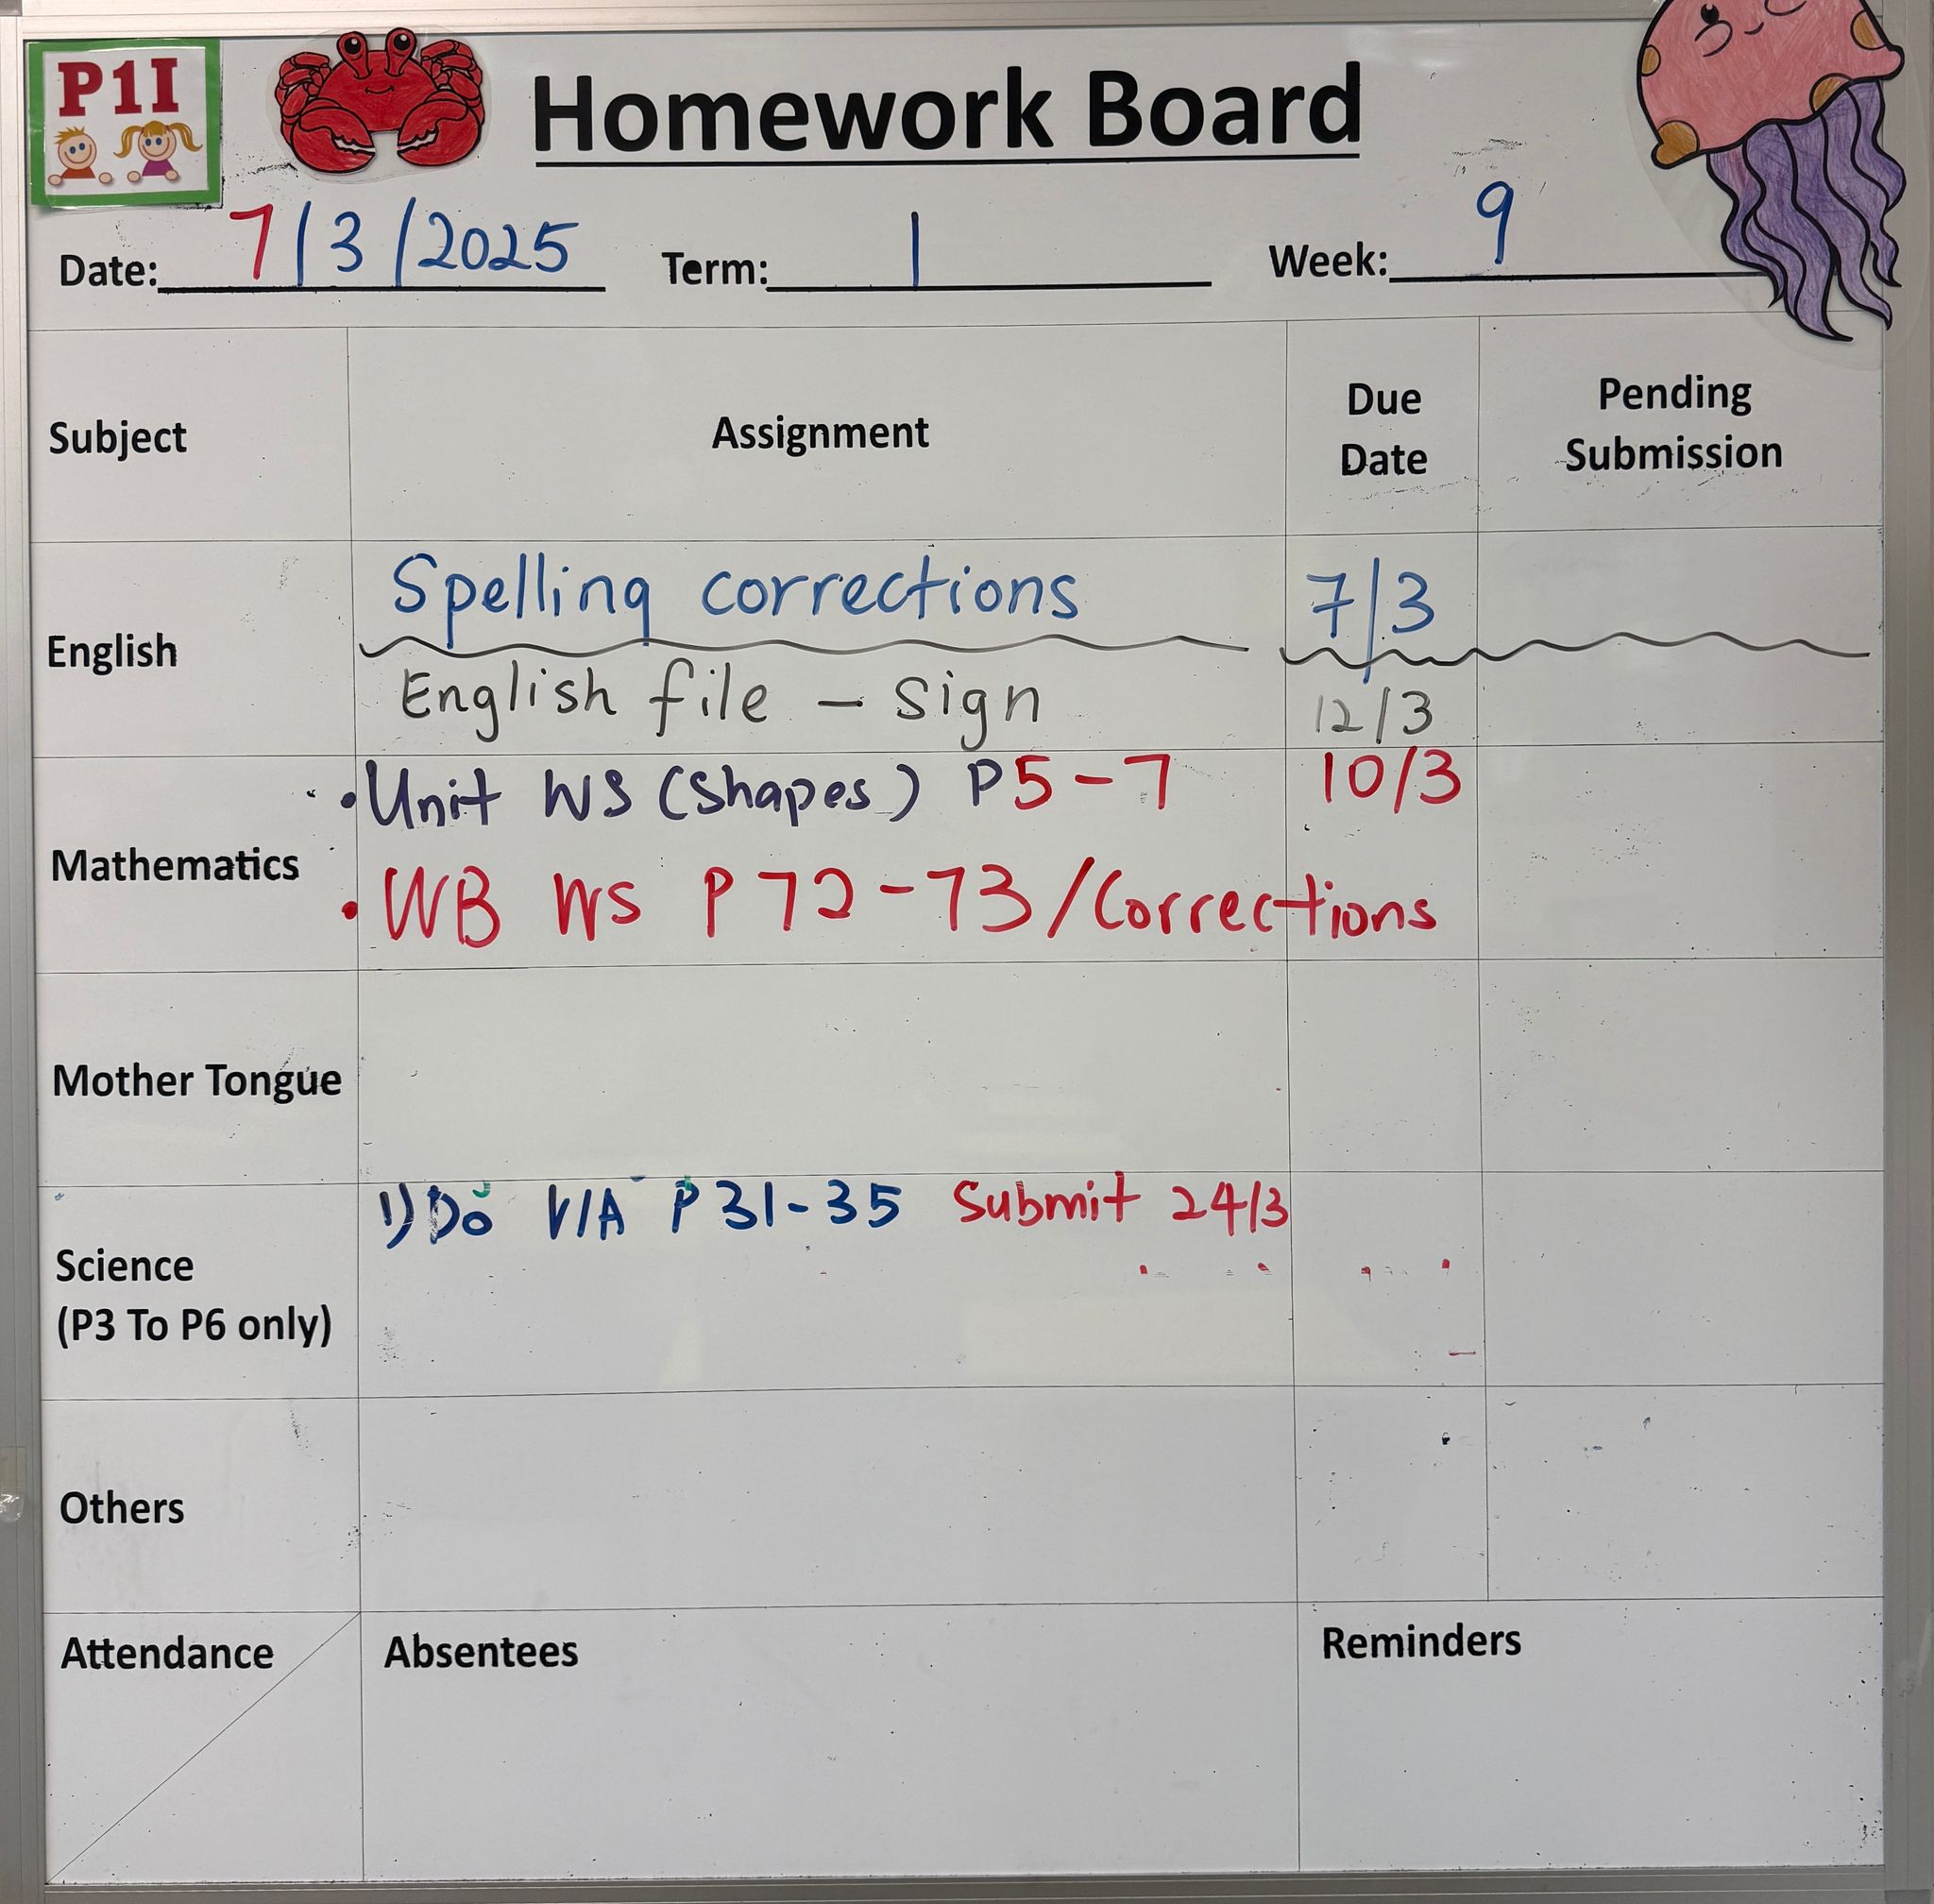 P1I
Homework Board
Date: 7/3/2025 Term: 1 Week: 9
Subject Assignment Due Date Pending Submission
English Spelling corrections 7/3
English file - Sign 12/3
Mathematics
• Unit WS (Shapes) P5-7 10/3
• WB WS P 72-73 / Corrections
Mother Tongue
1) Do V/A P 31-35 Submit 24/3
Science
(P3 To P6 only)
Others
Attendance Absentees Reminders